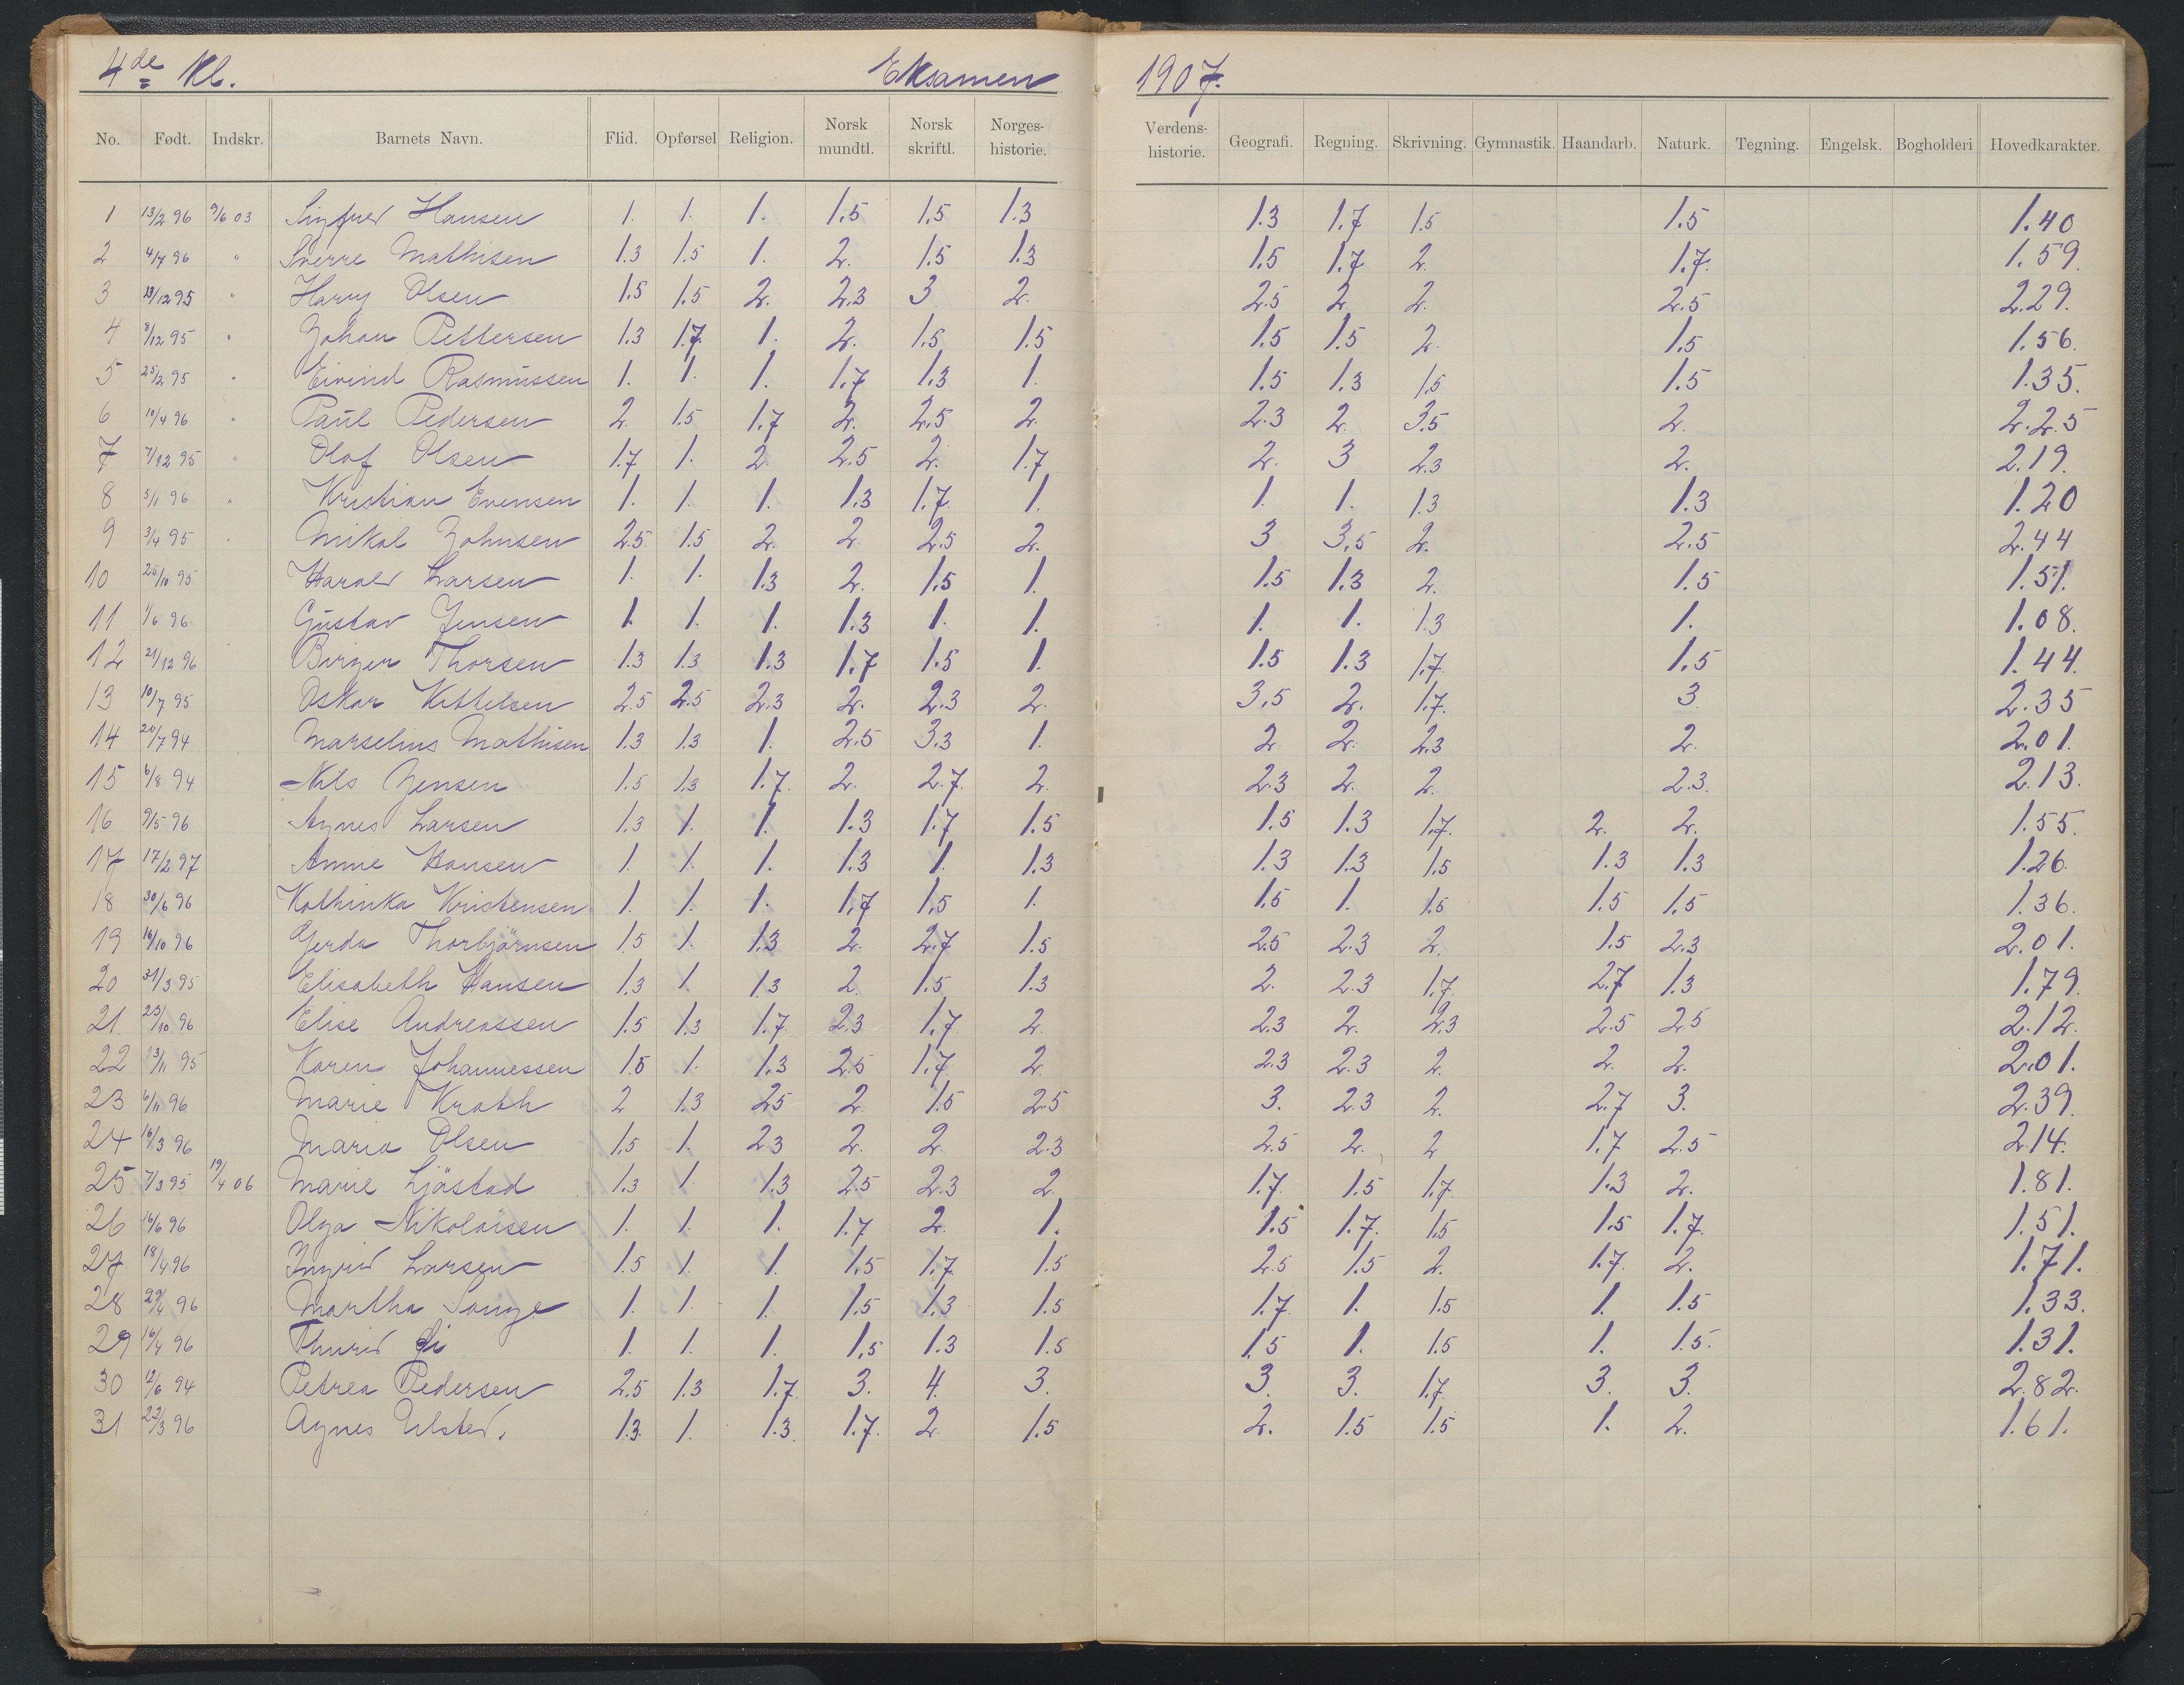 4de Kl. Eksamen 1907.
No. Født. Indskr. Barnets Navn. Flid. Opførsel Religion. Norsk mundtl. Norsk skriftl. Norges-historie. Verdens-historie. Geografi. Regning. Skrivning. Gymnastik. Haandarb. Naturk. Tegning. Engelsk. Bogholderi Hovedkarakter.
1 13/2 96 9/6 03 Sigfred Hansen 1. 1. 1. 1.5 1.5 1.3 1.3 1.7 1.5 1.5 1.40
2 4/7 96 " Sverre Mathisen 1.3 1.5 1. 2. 1.5 1.3 1.5 1.7 2. 1.7. 1.59.
3 13/12 95 " Harry Olsen 1.5 1.5 2. 2.3 3 2. 2.5 2. 2. 2.5 2.29.
4 8/12 95 " Johan Pettersen 1.3 1.7. 1. 2. 1.5 1.5 1.5 1.5 2. 1.5 1.56.
5 25/2 95 " Eivind Rasmussen 1. 1. 1. 1.7 1.3 1. 1.5 1.3 1.5 1.5 1.35.
6 10/4 96 " Paul Pedersen 2. 1.5 1.7 2. 2.5 2. 2.3 2. 3.5 2. 2.25
7 7/12 95 " Olaf Olsen 1.7 1. 2 2.5 2. 1.7 2. 3 2.3 2. 2.19.
8 5/1 96 " Kristian Evensen 1. 1. 1. 1.3 1.7. 1. 1. 1. 1.3 1.3 1.20
9 3/4 95 " Mikal Johnsen 2.5 1.5 2. 2. 2.5 2. 3 3.5 2. 2.5 2.44
10 25/10 95 Harald Larsen 1. 1. 1.3 2. 1.5 1. 1.5 1.3 2. 1.5 1.51.
11 1/6 96 Gustav Jensen 1. 1. 1. 1.3 1. 1. 1. 1. 1.3 1. 1.08.
12 21/12 96 Birger Thorsen 1.3 1.3 1.3 1.7 1.5 1. 1.5 1.3 1.7. 1.5 1.44.
13 10/7 95 Oskar Kittelsen 2.5 2.5 2.3 2. 2.3 2. 3.5 2. 1.7. 3. 2.35
14 /7 94 Marselius Mathisen 1.3 1.3 1. 2.5 3.3 1. 2. 2. 2.3 2. 2.01.
15 6/8 94 Nils Jensen 1.5 1.3 1.7. 2. 2.7. 2. 2.3 2. 2. 2.3. 2.13.
16 9/5 96 Agnes Larsen 1.3 1. 1. 1.3 1.7 1.5 1.5 1.3 1.7. 2. 2. 1.55.
17 17/2 97 Anne Hansen 1. 1. 1. 1.3 1. 1.3 1.3 1.3 1.5 1.3 1.3 1.26.
18 30/6 96 Kathinka Kristensen 1. 1. 1. 1.7 1.5 1. 1.5 1. 1.5 1.5 1.5 1.36.
19 16/10 96 Gerda Thorbjörnsen 1.5 1. 1.3 2. 2.7 1.5 2.5 2.3 2. 1.5 2.3 2.01.
20 31/3 95 Elisabeth Hansen 1.3 1. 1.3 2. 1.5 1.3 2. 2.3 1.7. 2.7 1.3 1.79.
21. 23/10 96 Elise Andreassen 1.5 1.3 1.7. 2.3 1.7. 2. 2.3 2. 2.3 2.5 2.5 2.12.
22 13/11 95 Karen Johannessen 1.5 1. 1.3 2.5 1.7. 2. 2.3 2.3 2. 2. 2. 2.01.
23 6/11 96 Marie Krabh 2 1.3 2.5 2. 1.5 2.5 3. 2.3 2. 2.7 3. 2.39.
24 16/3 96 Maria Olsen 1.5 1. 2.3 2. 2. 2.3 2.5 2. 2 1.7 2.5 2.14.
25 7/3 95 19/4 06 Marie Ljöstad 1.3 1. 1.3 2.5 2.3 2. 1.7. 1.5 1.7. 1.3 2. 1.81.
26 16/6 96 Olga Nikolaisen 1. 1. 1. 1.7 2. 1. 1.5 1.7. 1.5 1.5 1.7. 1.51.
27 18/4 96 Ingrid Larsen 1.5 1. 1. 1.5 1.7. 1.5 2.5 1.5 2. 1.7. 2. 1.71.
28 29/4 96 Martha Sauge 1. 1. 1. 1.5 1.3 1.5 1.7. 1. 1.5 1. 1.5 1.33.
29 16/4 96 Thurid Gi 1. 1. 1. 1.5 1.3 1.5 1.5 1. 1.5 1. 1.5. 1.31.
30 12/6 94 Petrea Pedersen 2.5 1.3 1.7. 3. 4. 3. 3. 3. 1.7. 3. 3. 2.82.
31 22/3 96 Agnes Ulsted. 1.3. 1. 1.3. 1.7. 2. 1.5 2. 1.5 1.5 1. 2. 1.61.